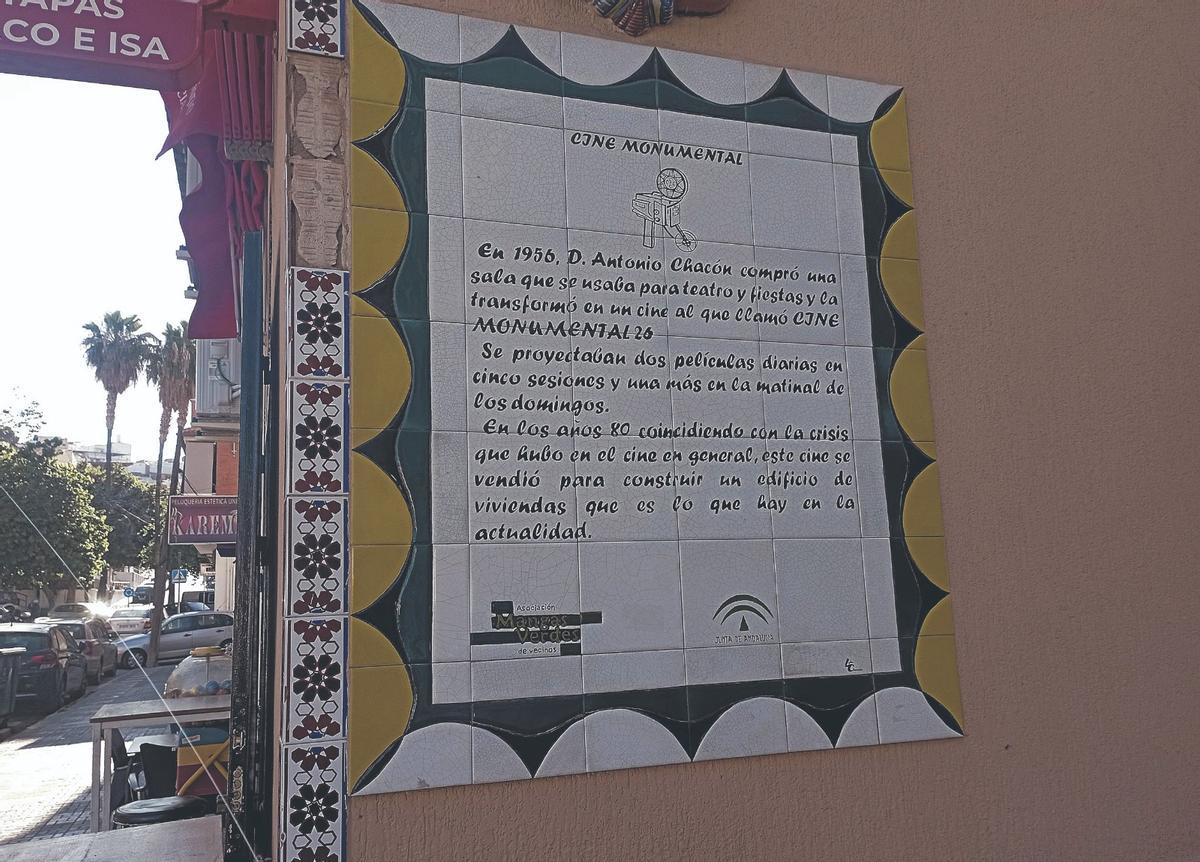 TAPAS
CO E ISA
CINE MONUMENTAL
En 1956, D. Antonio Chacón compró una
sala que se usaba para teatro y fiestas y la
transformó en un cine al que llamó CINE
MONUMENTAL 26
Se proyectaban dos películas diarias en
cinco sesiones y una más en la matinal de
los domingos.
En los años 80 coincidiendo con la crisis
que hubo en el cine en general, este cine se
vendió para construir un edificio de
viviendas que es lo que hay en la
actualidad.
Asociación
Mangas
Verdes
de vecinos
JUNTA DE ANDALUCIA
PELUQUERIA ESTETICA
KAREM